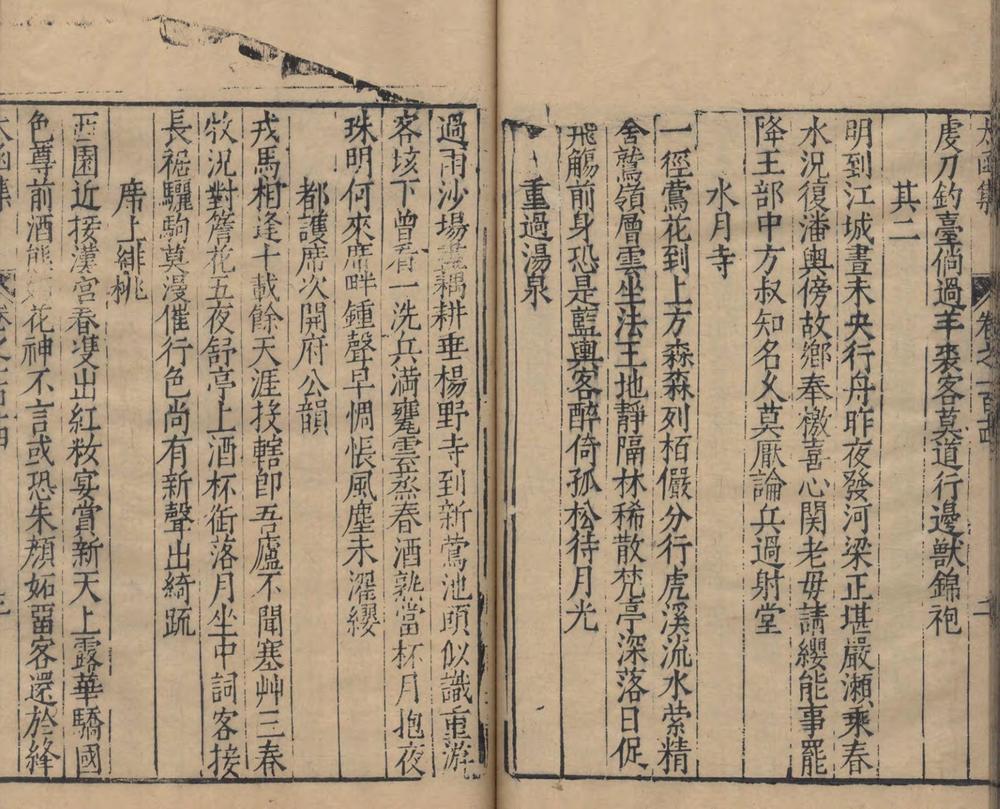 太函集 卷之一百十四 二
虔刀釣臺倘過羊裘客莫道行邊獸錦袍
其二
明到江城晝未央行舟昨夜發河梁正堪嚴瀨乘春
水況復潘輿傍故鄉奉檄喜心関老母請纓能事罷
降王部中方叔知名乆莫厭論兵過射堂
水月寺
一徑鶯花到上方森森列栢儼分行虎溪流水縈精
舍鷲嶺層雲坐法王地靜隔林稀散梵亭深落日促
飛觴前身恐是藍輿客醉倚孤松待月光
重過湯泉
過雨沙場盡耦耕垂楊野寺到新鶯池頭似識重游
客垓下曾看一洗兵滿甕雲蒸春酒熟當杯月抱夜
珠明何來席畔鍾聲早惆悵風塵未濯纓
都護席次開府公韻
戎馬相逢十載餘天涯投轄卽吾廬不聞塞艸三春
牧況對簷花五夜舒亭上酒杯銜落月坐中詞客接
長裾驪駒莫漫催行色尚有新聲出綺䟽
席上緋桃
西園近接漢宮春㕠出紅粧宴賞新天上露華驕國
色尊前酒熊花神不言或恐朱顏妬畱客還於絳
太函集 卷之一百十四 三